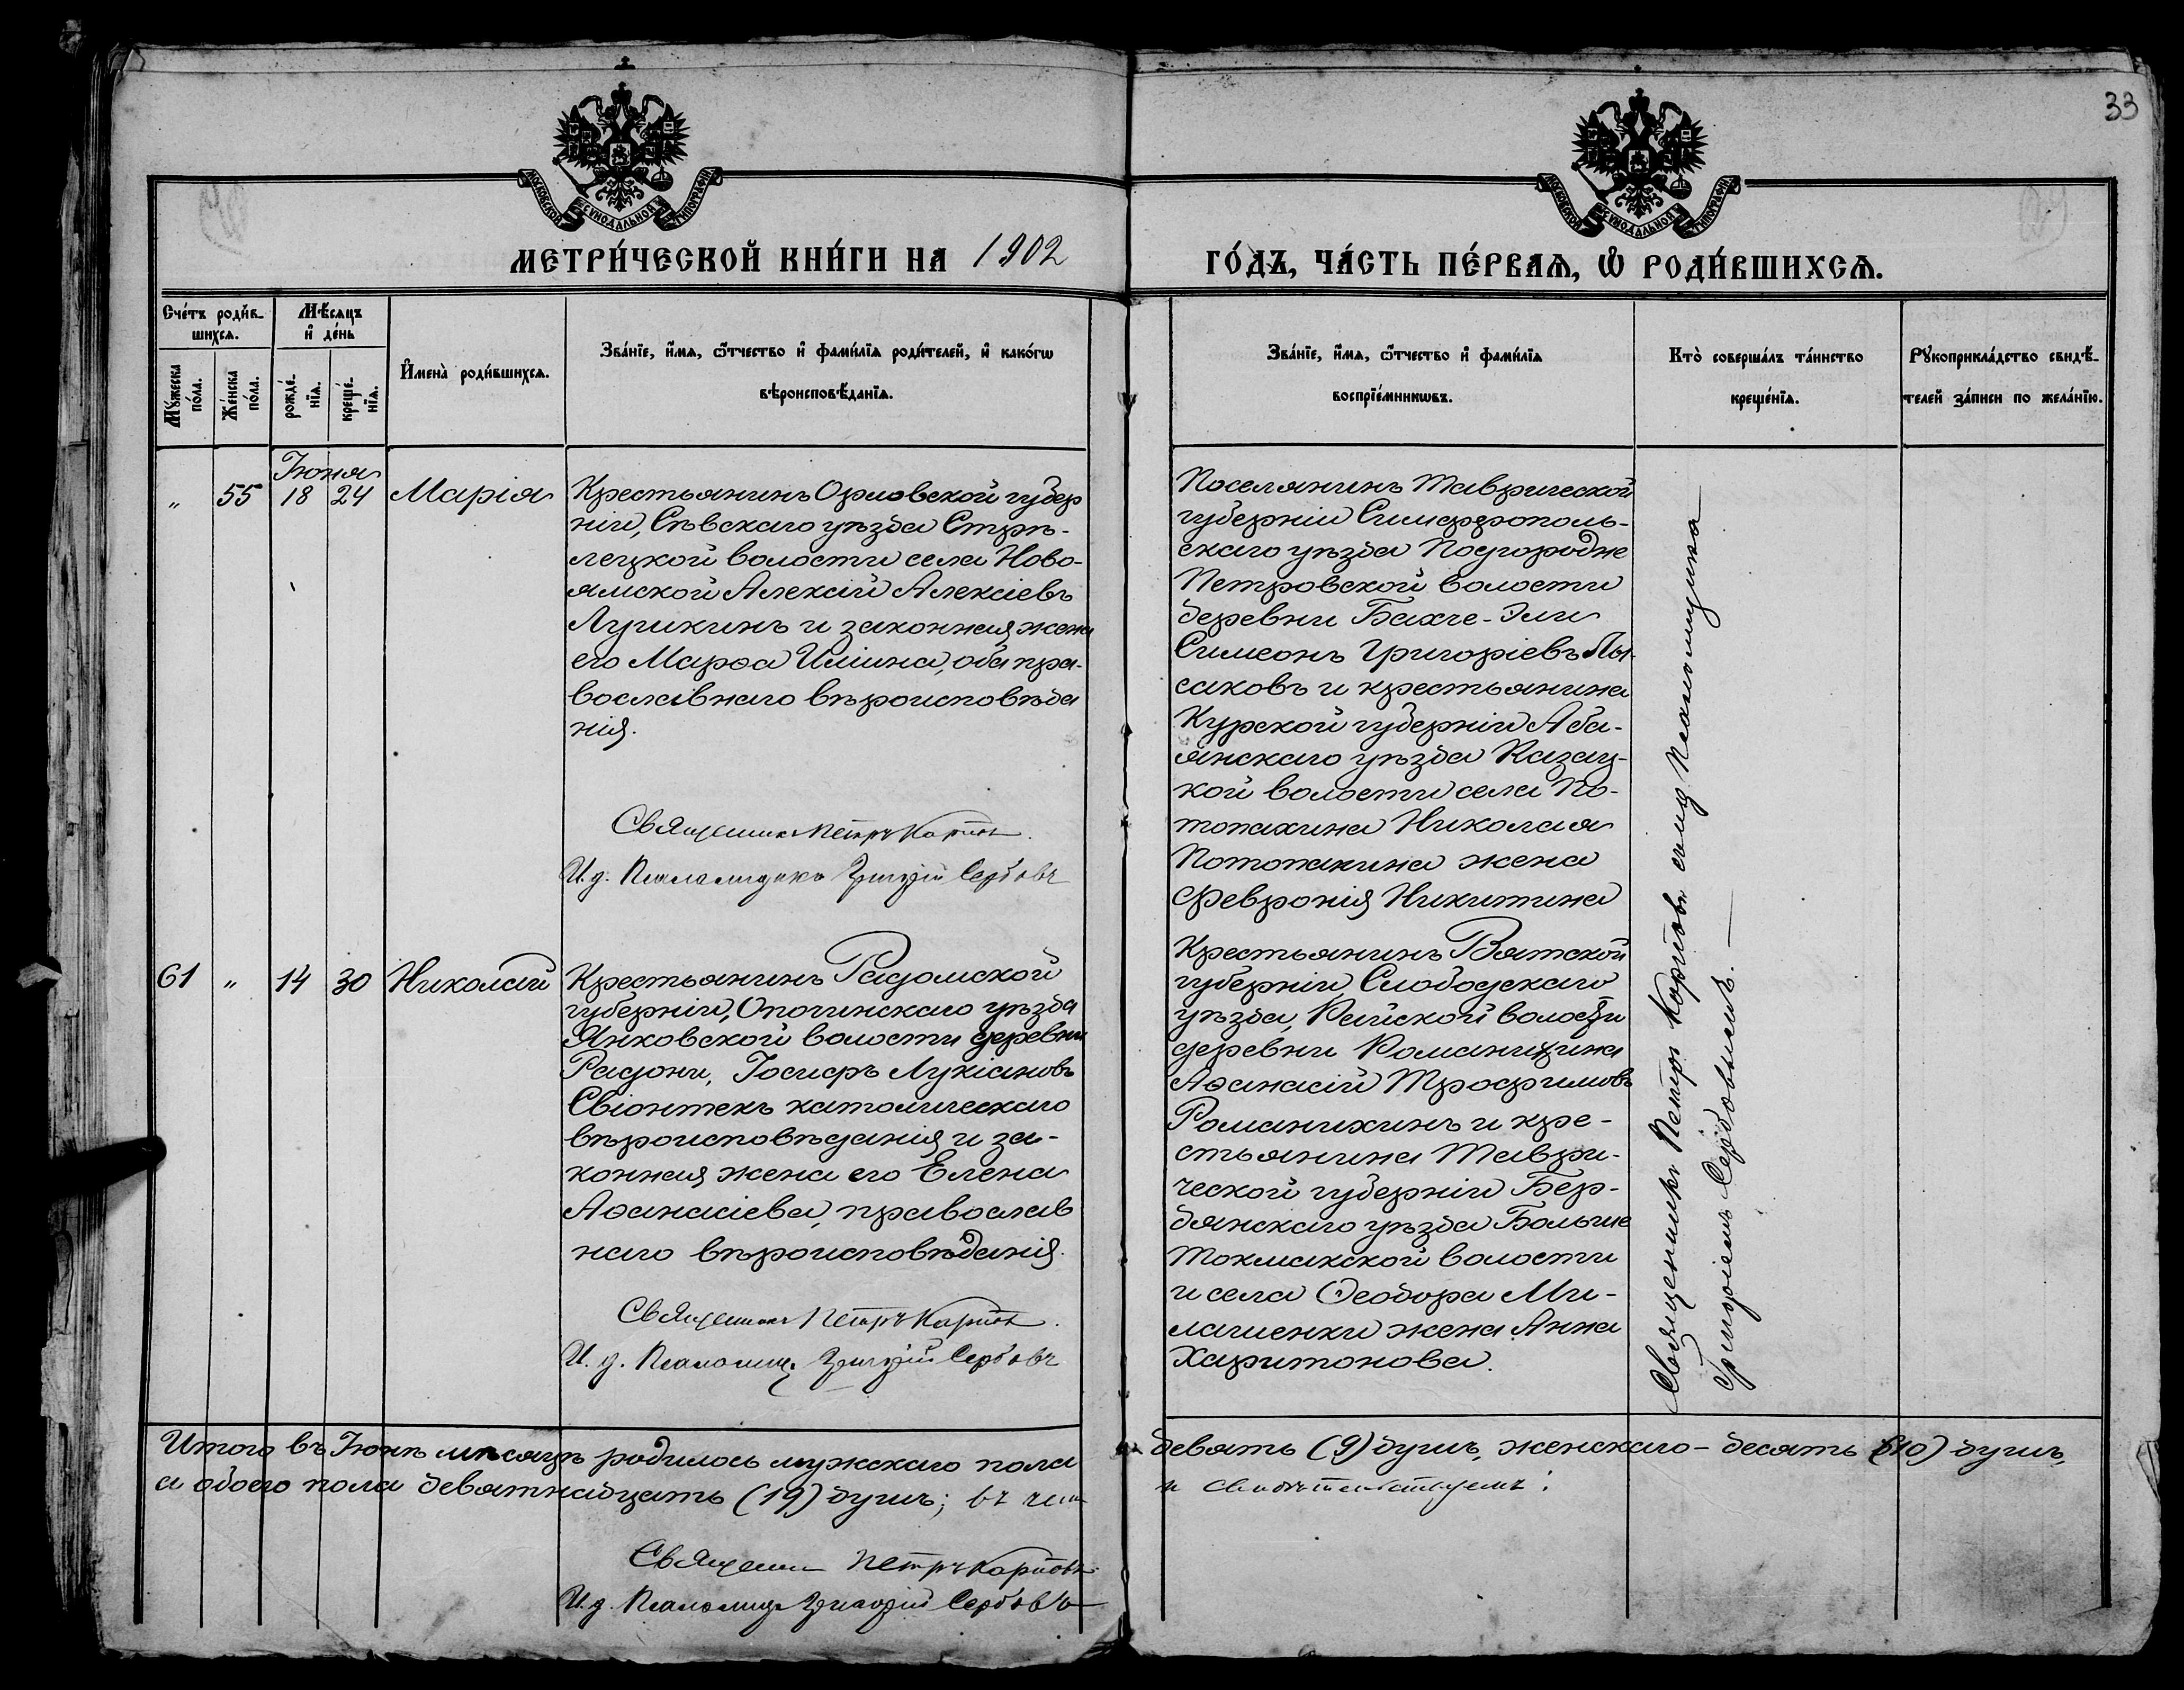 33
МОСКОВСКОЙ СѴНОДАЛЬНОЙ ТИПОГРАФІИ
МОСКОВСКОЙ СѴНОДАЛЬНОЙ ТИПОГРАФІИ
МЕТРИ́ЧЕСКОЙ КНИ́ГИ НА 1902
ГО́ДЪ, ЧА́СТЬ ПЕ́РВАѦ, Ѡ҆ РОДИ́ВШИХСѦ.
Сче́тъ роди́в-
шихсѧ.
Му́жеска
по́ла.
Же́нска
по́ла.
Мѣ́сяцъ
и҆ де́нь
рожде́-
нїѧ.
креще́-
нїѧ.
И҆мена̀ роди́вшихсѧ.
Зва́нїе, и҆́мѧ, ѻ҆́тчество и҆ фами́лїѧ роди́телей, и҆ како́гѡ
вѣроисповѣ́данїѧ.
Зва́нїе, и҆́мѧ, ѻ҆́тчество и҆ фами́лїѧ
воспрїе́мникѡвъ.
Кто̀ соверша́лъ та́инство
креще́нїѧ.
Рꙋкоприкла́дство свидѣ́-
телей за́писи по жела́нїю.
Іюня
" 55 18 24 Марія
Крестьянинъ Орловской губер
ніи, Сѣвскаго уѣзда Стрѣ-
лецкой волости села Ново-
ямской Алексій Алексіевъ
Лушкинъ и законная жена
его Марѳа Иліина, оба пра-
вославнаго вѣроисповѣда
нія.
Священникъ Петръ Карпов
И. д. Псаломщика Григорій Сербовъ
Поселянинъ Таврической
губерніи Симферополь-
скаго уѣзда Подгородне
Петровской волости
деревни Бахче-Эли
Симеонъ Григоріевъ Лы-
саковъ и крестьянина
Курской губерніи Обо-
янскаго уѣзда Казац-
кой волости села По-
топахина Николая
Потопахина жена
Февронія Никитина
61 " 14 30 Николай
Крестьянинъ Радомской
губерніи, Опочинскаго уѣзда
Янковской волости деревни
Радони, Іосифъ Лукіановъ
Свіонтекъ католическаго
вѣроисповѣданія и за-
конная жена его Елена
Аѳанасіева, православ
наго вѣроисповѣданія.
Священникъ Петръ Карпов
И. д. Псаломщ. Григорій Сербовъ
Крестьянинъ Вятской
губерніи Слободскаго
уѣзда, волости
деревни Романихина
Аѳанасій Трофимовъ
Романихинъ и кре-
стьянина Таври-
ческой губерніи Бер-
дянскаго уѣзда Больше
Токмакской волости
и села Ѳеодора Ми-
лашенки жена Анна
Харитонова.
Священникъ Петръ Карповъ съ и. д. Псаломщика
Григоріемъ Сербовымъ.
Итого въ Іюнѣ мѣсяцѣ родилось мужскаго пола девять (9) душъ, женскаго - десять (10) душъ,
а обоего пола девятнадцать (19) душъ; въ чемъ и свидѣтельствуемъ:
Священникъ Петръ Карповъ
И. д. Псаломщ. Григорій Сербовъ